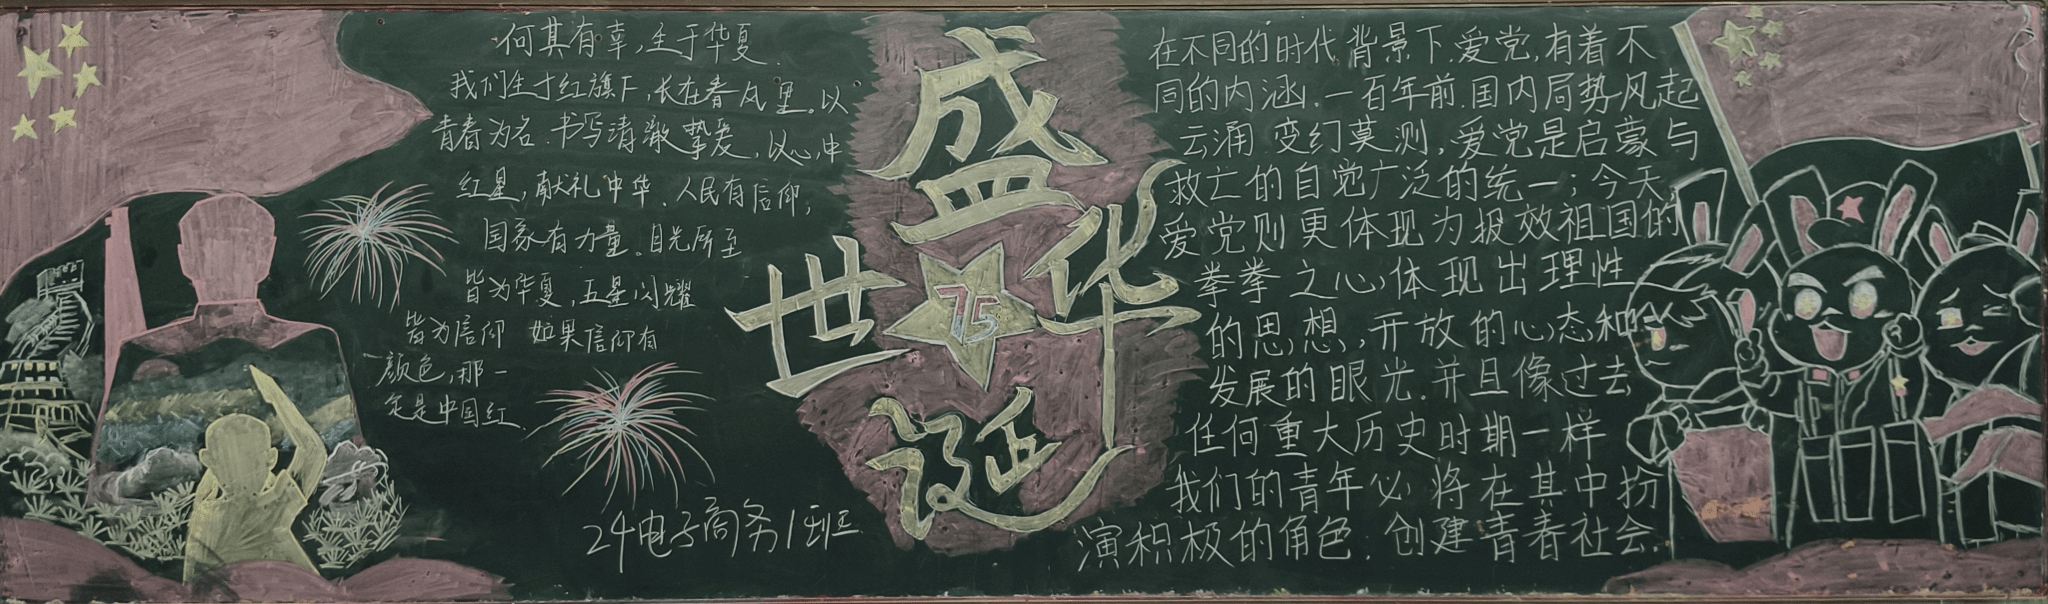 何其有幸，生于华夏.
我们生于红旗下，长在春风里。以
青春为名.书写清澈挚爱，以心中
红星，献礼中华.人民有信仰，
国家有力量。目光所至
皆为华夏，五星闪耀
皆为信仰 如果信仰有
颜色，那一
定是中国红.
24电子商务1班
盛
世 华
75
诞
在不同的时代背景下.爱党，有着不
同的内涵.一百年前.国内局势风起
云涌 变幻莫测，爱党是启蒙与
救亡的自觉广泛的统一；今天
爱党则更体现为报效祖国的
拳拳之心，体现出理性
的思想，开放的心态和
发展的眼光.并且像过去
任何重大历史时期一样
我们的青年必将在其中扮
演积极的角色.创建青春社会.